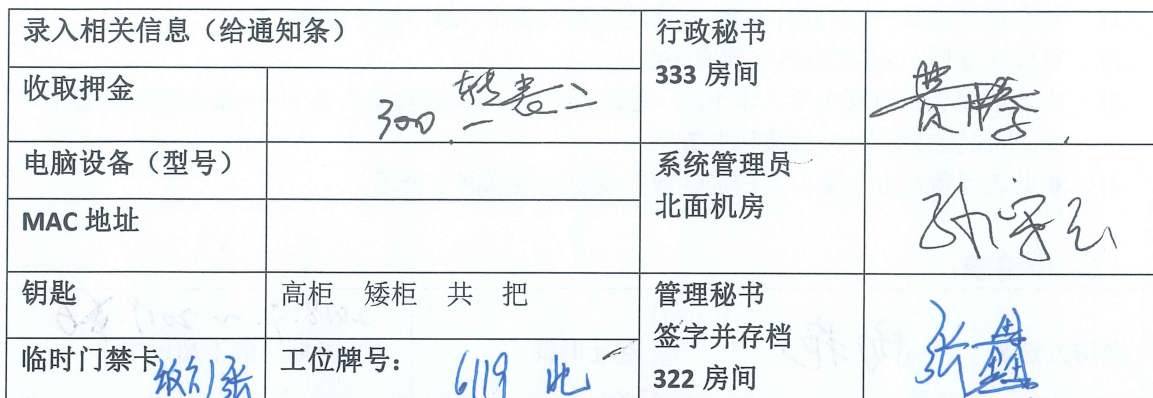 录入相关信息（给通知条）
行政秘书
333 房间
收取押金
300.
电脑设备（型号）
系统管理员
北面机房
MAC 地址
钥匙
高柜 矮柜 共 把
管理秘书
签字并存档
322 房间
张鑫
临时门禁卡
工位牌号：
6119 北